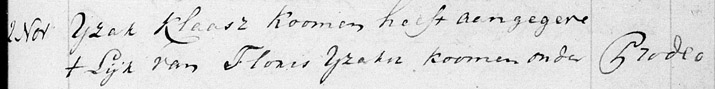 2 Nov Yzak Klaasz Koomen heeft aengegeve
t Lijk van Floris Yzakz koomen onder Prodeo